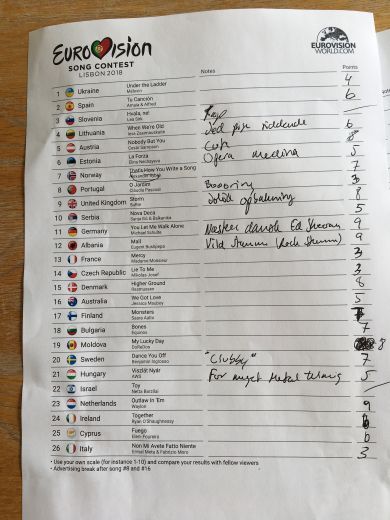 EUROVISION
SONG CONTEST
LISBON 2018
EUROVISION
WORLD.COM
Notes Points
1 Ukraine Under the Ladder 4
Mélovin
2 Spain Tu Canción 6
Amaia & Alfred
3 Slovenia Hvala, ne! Rap
Lea Sirk
4 Lithuania When We're Old Sød pige 6
Ieva Zasimauskaitė
5 Austria Nobody But You Cute 8
Cesár Sampson
6 Estonia La Forza Opera 5
Elina Nechayeva
7 Norway That's How You Write a Song 7
Alexander Rybak
8 Portugal O Jardim Booooring 3
Cláudia Pascoal
9 United Kingdom Storm Solid 8
SuRie
10 Serbia Nova Deca 5
Sanja Ilić & Balkanika
11 Germany You Let Me Walk Alone Næsten dansk Ed Sheeran 9
Michael Schulte
12 Albania Mall Vild stemme (Rock stemme) 9
Eugent Bushpepa
13 France Mercy 3
Madame Monsieur
14 Czech Republic Lie To Me 3
Mikolas Josef
15 Denmark Higher Ground 8
Rasmussen
16 Australia We Got Love 5
Jessica Mauboy
17 Finland Monsters 7
Saara Aalto
18 Bulgaria Bones 7
Equinox
19 Moldova My Lucky Day 8
DoReDos
20 Sweden Dance You Off "Clubby" 7
Benjamin Ingrosso
21 Hungary Viszlát Nyár For meget Metal til mig 5
AWS
22 Israel Toy
Netta Barzilai
23 Netherlands Outlaw In 'Em 9
Waylon
24 Ireland Together 6
Ryan O'Shaughnessy
25 Cyprus Fuego 6
Eleni Foureira
26 Italy Non Mi Avete Fatto Niente 3
Ermal Meta & Fabrizio Moro
• Use your own scale (for instance 1-10) and compare your results with fellow viewers
• Advertising break after song #8 and #16